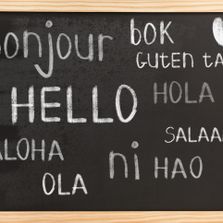 bonjour
bok
GUTEN TA
HELLO
HOLA
SALAA
ALOHA
ni HAO
OLA